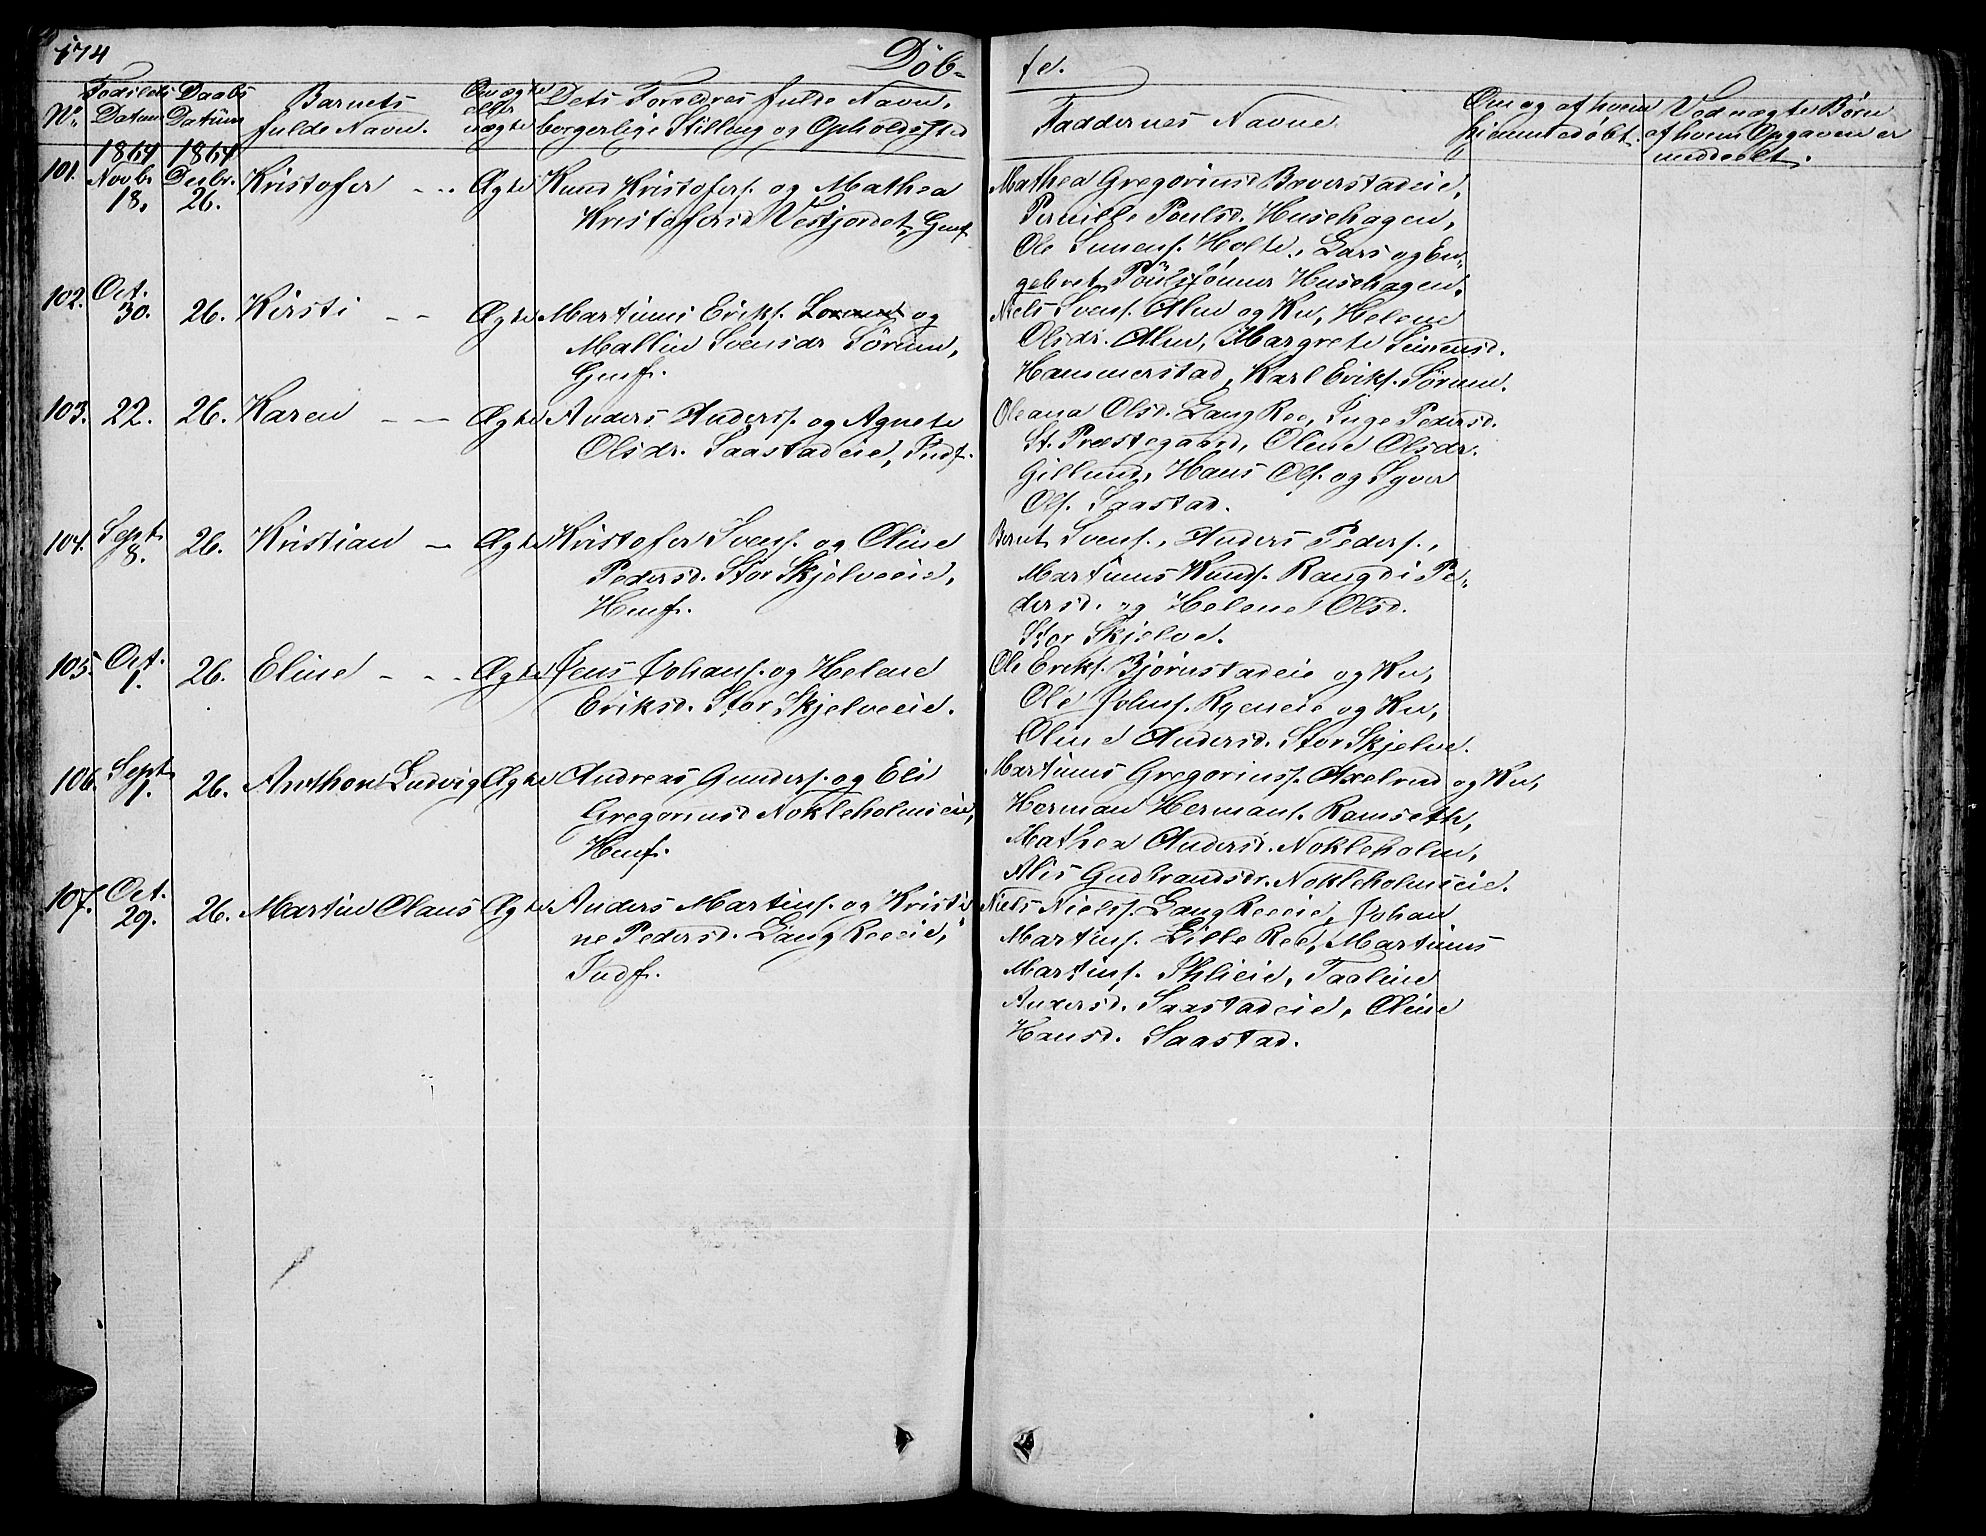 174
Døb-
te.
No. Fødsels Datum Daabs Datum Barnets fulde Navn. Om ægte eller uægte Dets Forældres fulde Navn, borgerlige Stilling og Opholdssted
Faddernes Navne.
Om og af hvem hjemmedøbt.
Ved uægte Børn af hvem Opgaven er meddeelt.
101. 1864 Novbr 18. 1864 Desbr. 26. Kristofer - - - Ægte Knud Kristofers. og Mathea
Kristofersd Vestjordet, Gmf.
Mathea Gregoriusd Bverstadeie,
Pernille Poulsd. Husehagen,
Ole Simens. Holte, Lars og En-
gebret Poulsønner Husehagen.
102. Oct. 30. 26. Kirsti - - Ægte Martinus Eriks. og
Mallin Svensdr Sørum,
Gmf.
Niels Svens. Alm og Ku, Helene
Olsdr. Alm, Margrete Simensd.
Hammerstad, Karl Eriks. Sørum.
103. 22. 26. Karen - - - Ægte Anders Anders. og Agnete
Olsdr. Saastadeie, Indf.
Oleana Olsd. Lang Ree, Inge Pedersd.
St. Præstegaard, Oline Olsdr.
Gillund, Hans Ols. og Syver
Ols. Saastad.
104. Sept. 8. 26. Kristian - Ægte Kristofer Svens. og Oline
Pedersd. Stor Skjelveeie,
Hmf.
Bernt Svens., Anders Peders.,
Martinus Knuds. Rangdi Pe-
dersd. og Helene Olsd.
Stor Skjelve.
105. Oct. 1. 26. Eline - - - Ægte Jens Johans. og Helene
Eriksd. Stor Skjelveeie.
Ole Eriks. Bjørnstadeie og Ku,
Ole Johns. Ryeneie og Ku,
Oline Andersd. Stor Skjelve.
106. Sept. 1. 26. Anthon Ludvig Ægte Andreas Gunders. og Eli
Gregoriusd Nokleholmeie,
Hmf.
Martinus Gregoriuss. Axelrud og Ku,
Herman Hermans. Ramseth,
Mathea Andersd. Nokleholm,
Alis Gudbrandsdr. Nokleholmseie.
107. Oct. 29. 26. Martin Olaus Ægte Anders Martins. og Kristi-
ne Pedersd. Lang Reeeie,
Indf.
Niels Niels. Lang Reeeie, Johan
Martins. Lille Ree, Martinus
Martins. Ihlieie, Taaline
Andersd. Saastadeie, Oline
Hansd. Saastad.